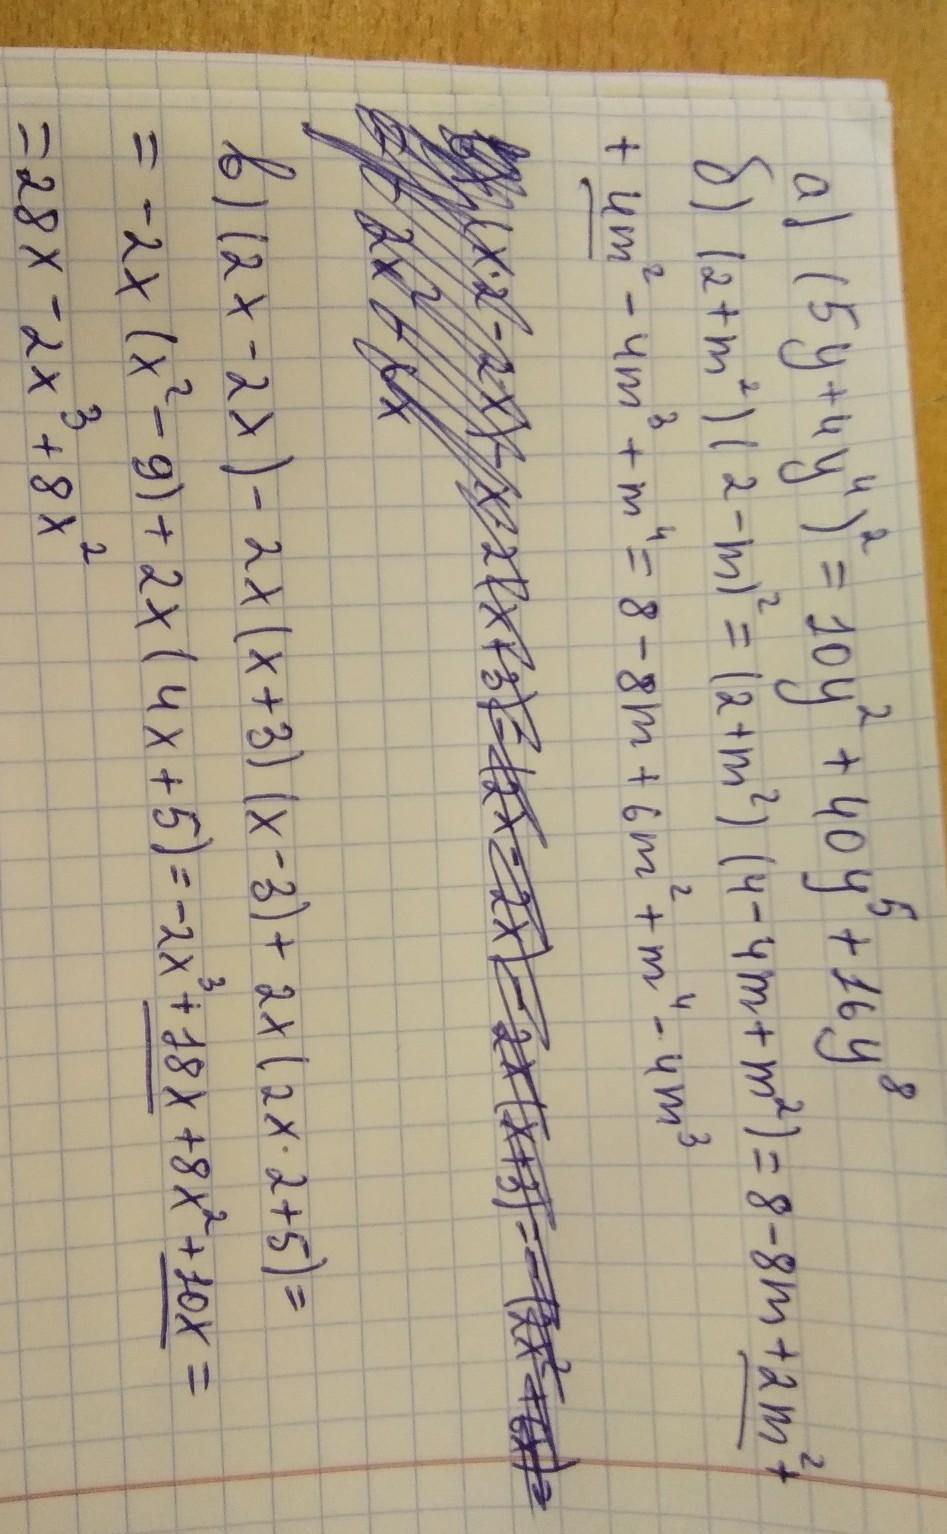 а) (5y+4y⁴)² = 10y² + 40y⁵ + 16y⁸
б) (2+m²)(2-m)² = (2+m²)(4-4m+m²) = 8-8m+2m²+
+ 4m² - 4m³ + m⁴ = 8-8m+6m²+m⁴-4m³
в) (2x-2x)-2x(x+3)(x-3)+2x(2x·2+5)=
= -2x(x²-9)+2x(4x+5)=-2x³+18x+8x²+10x=
=28x-2x³+8x²